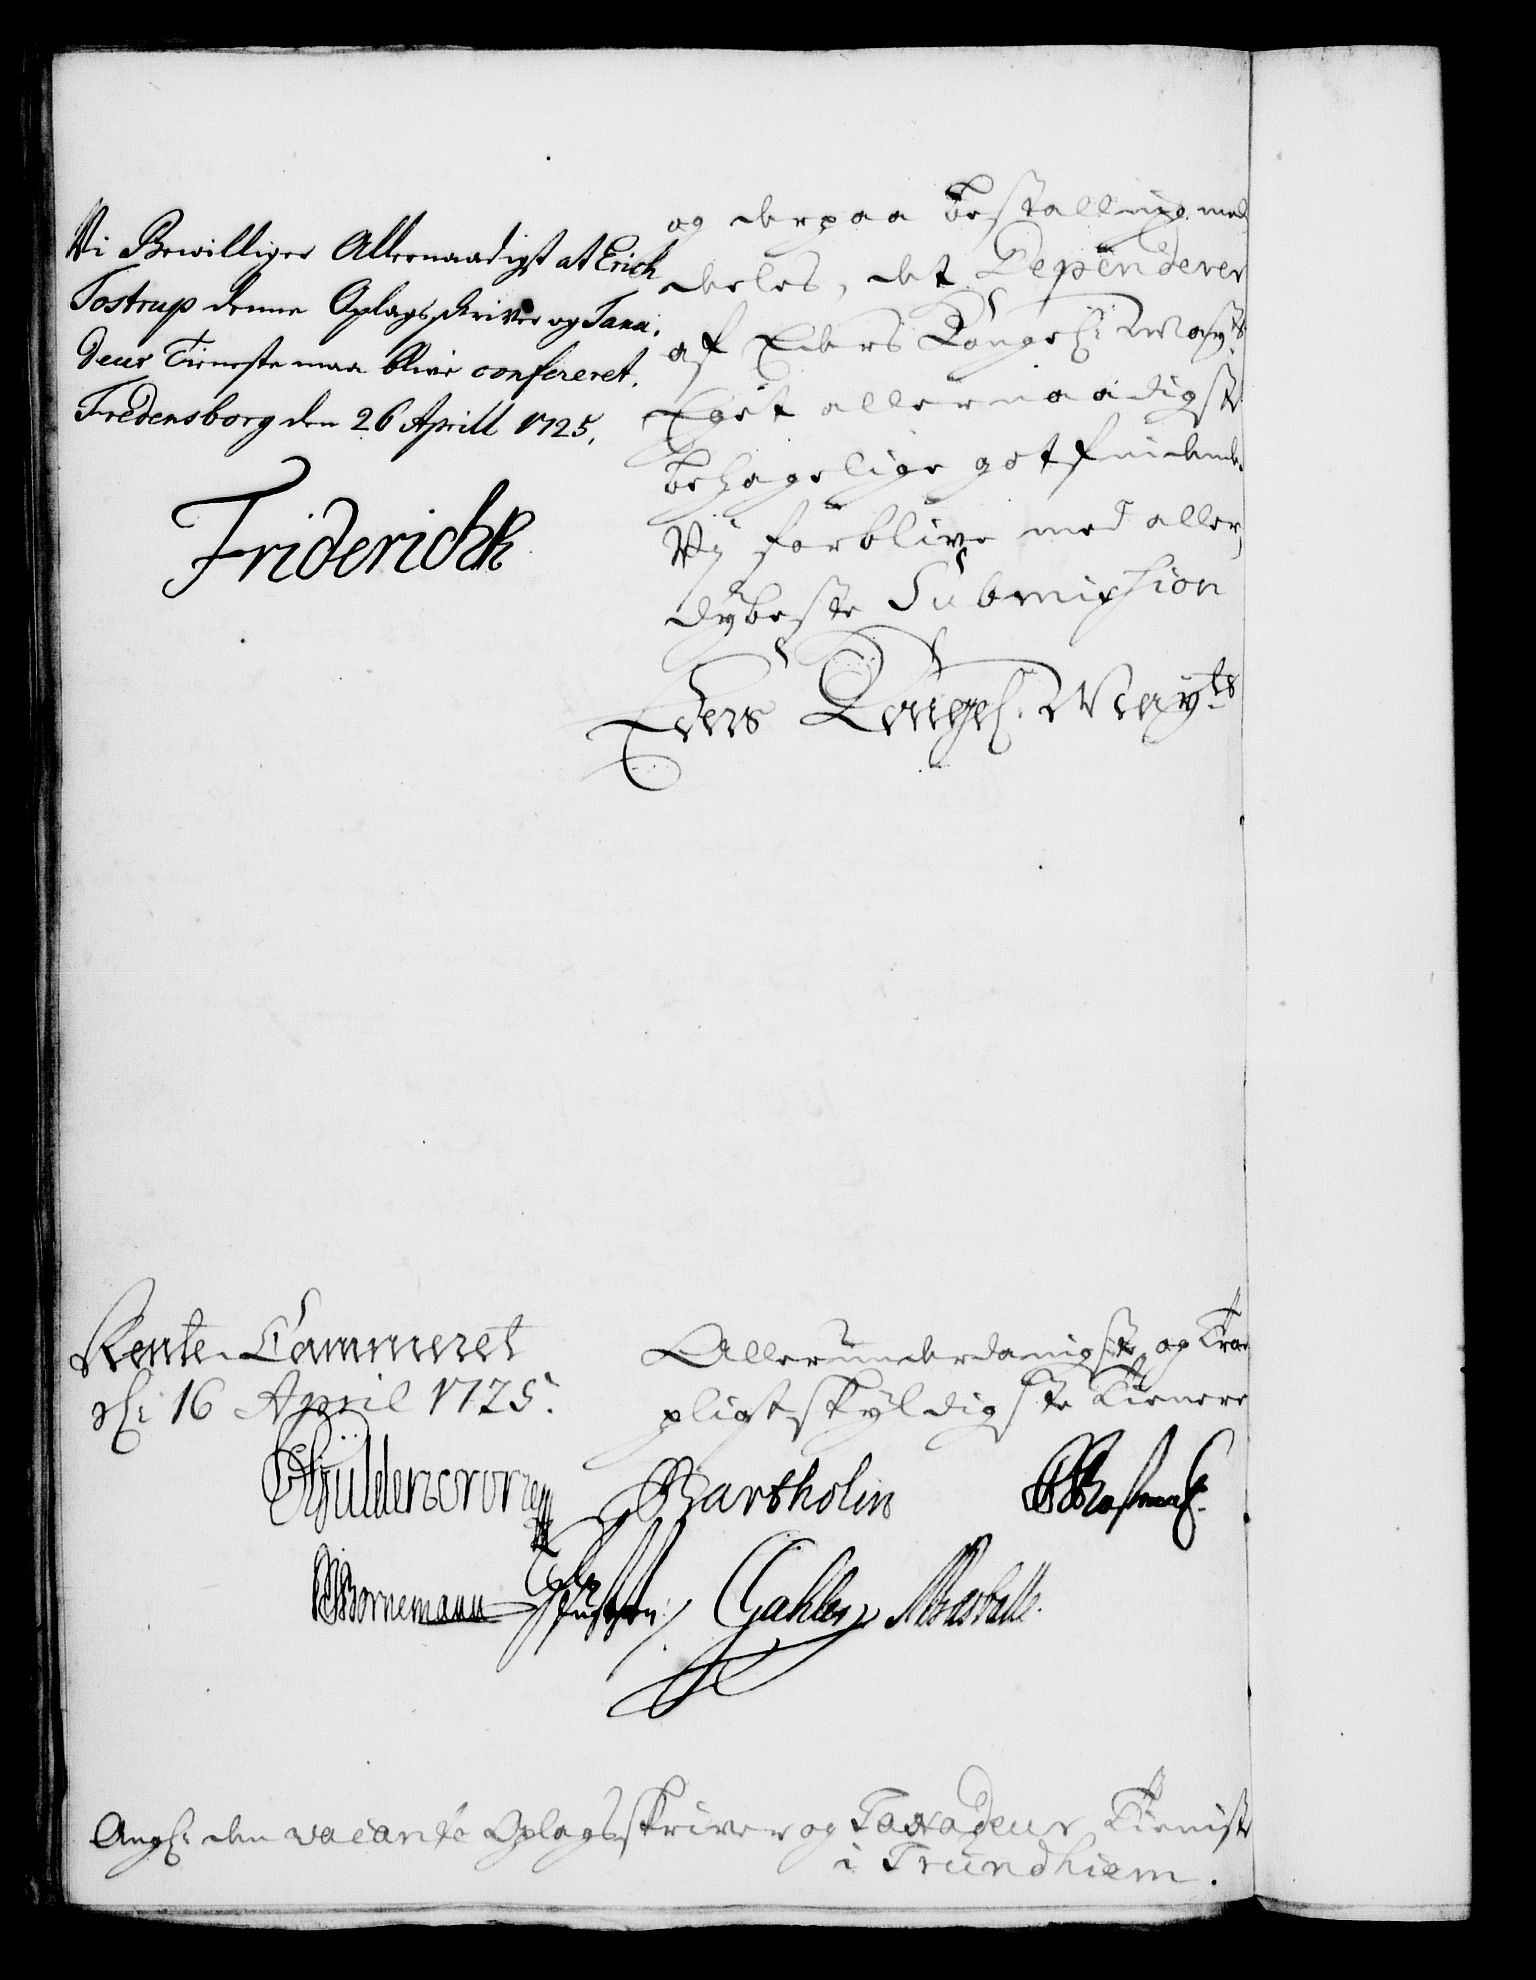 Vi Bewilliger Allernaadigst at Erich
Tostrup denne Oplagsskriver og Taxa-
deur Tieneste maa blive confereret.
Fredensborg den 26 Aprill 1725.
FriderichR
og derpaa bestalling med
deeles, det Dependerer
af Eders Kongel: May.ts
Eget allernaadigst
behagelige gotfindende.
Vi forblive med aller,
dybeste Submission
Eders Kongel. May.ts
Rente-Cammeret
d: 16 April 1725.
Allerunderdanigste og Troe
pligtskyldigste Tienere
Güldencrone
Bartholin
Bornemann
Gahler
Angl: den vacante Oplagsskriver og Taxadeur Tienist
i Trundhiem.